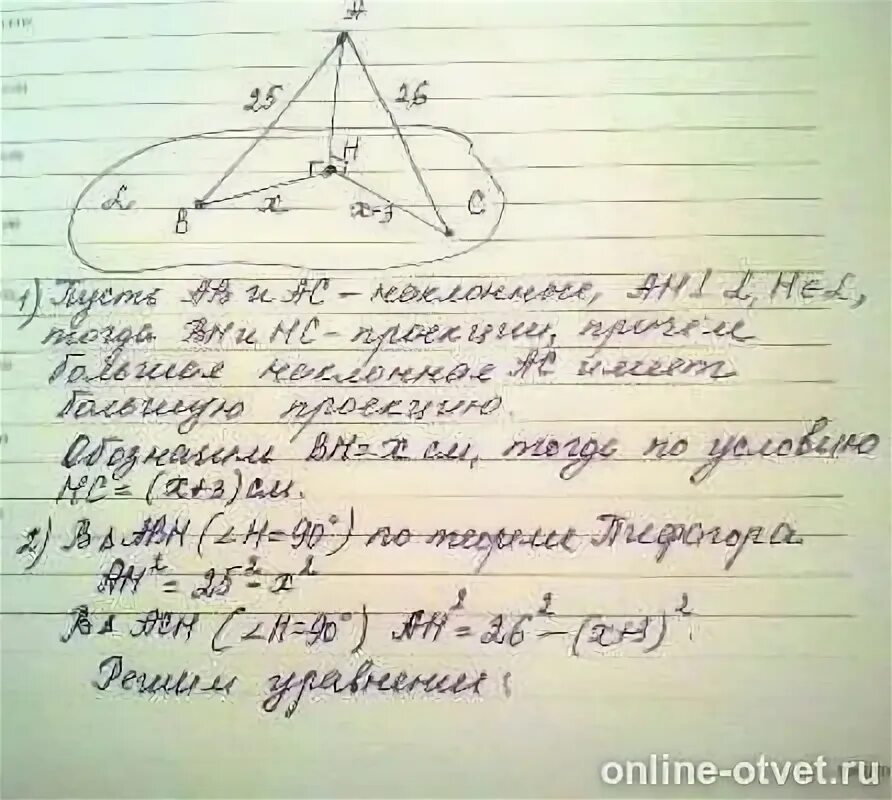 A
25
26
H
α
B
x
x+3
C
1) Пусть AB и AC - наклонные, AH⊥α, H∈α,
тогда BH и HC - проекции, причем
большая наклонная AC имеет
большую проекцию.
Обозначим BH=x см, тогда по условию
HC=(x+3)см.
2) В △ABH (∠H=90°) по теореме Пифагора
AH²=25²-x²
В △ACH (∠H=90°) AH²=26²-(x+3)².
Решим уравнение:
online-otvet.ru